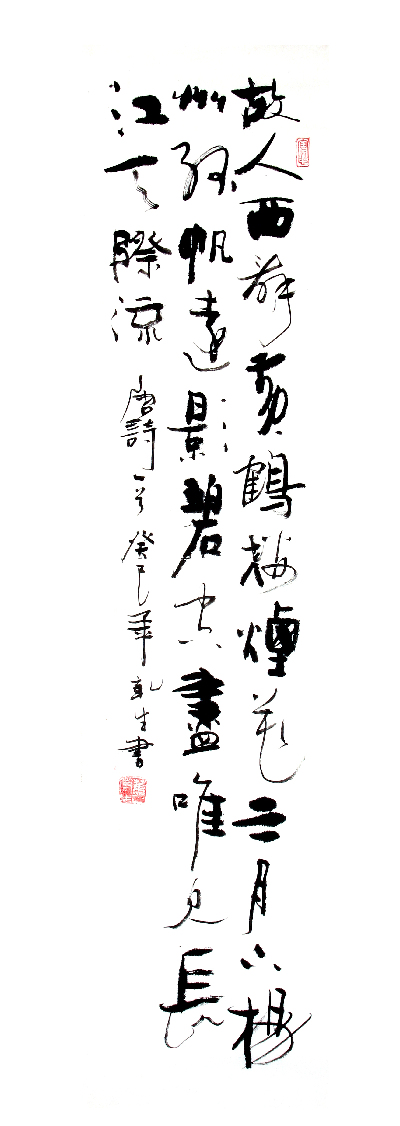 故人西辞黄鶴楼煙花三月下楊
州孤帆遠影碧空盡唯见長
江天際流 唐詩一首 癸巳年乾生書